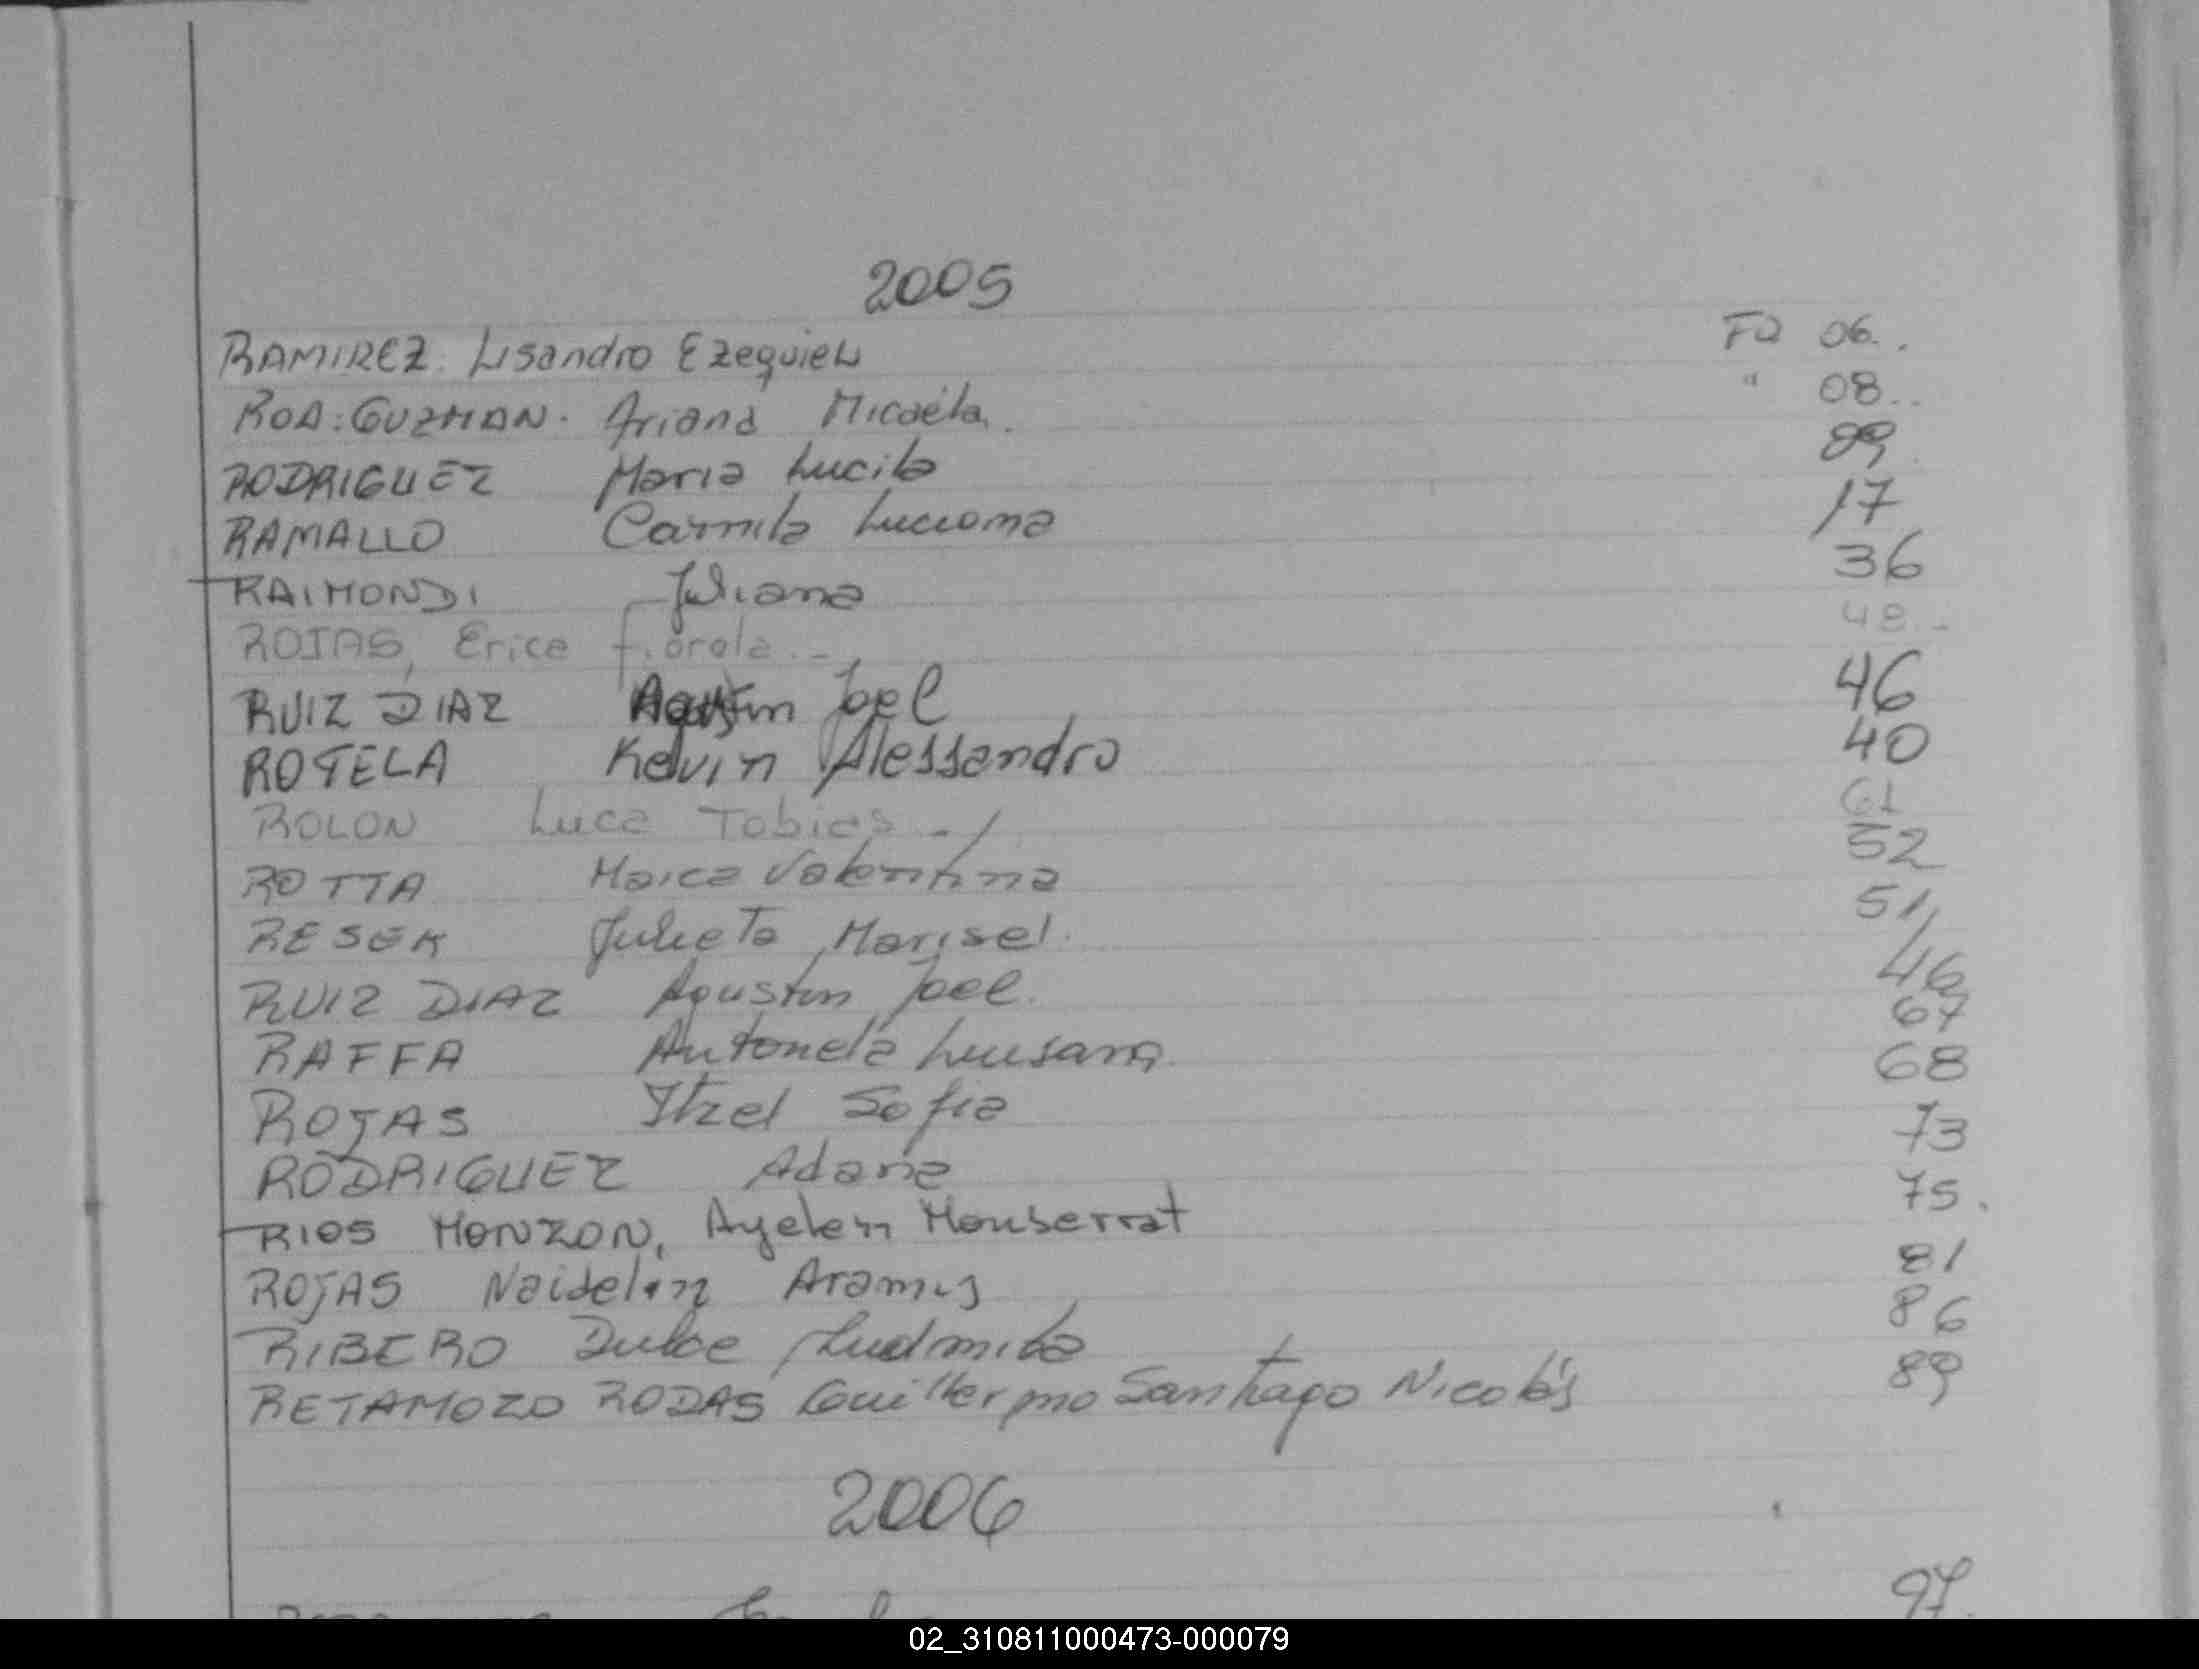 2005
RAMIREZ. Lisandro Ezequiel Fº 06..
ROA. GUZMAN. Ariana Micaéla. " 08..
RODRIGUEZ Maria Lucila 89
RAMALLO Camila Luciana 17
RAIMONDI Juliana 36
ROJAS, Erica fiorela.- 48.-
RUIZ DIAZ Agustin Joel 46
ROTELA Kelvin Alessandro 40
ROLON Luca Tobias.- 61
ROTTA Maica Valentina 52
RESEK Julieta Marisel. 51
RUIZ DIAZ Agustin Joel. 46
RAFFA Antonela Luisana. 67
ROJAS Itzel Sofia 68
RODRIGUEZ Adana 73
RIOS MONZON, Ayelen Monserrat 75.
ROJAS Naidelin Aramis 81
RIBERO Dulce Ludmila 86
RETAMOZO RODAS Guillermo Santiago Nicolás 89
2006
97.
02_310811000473-000079